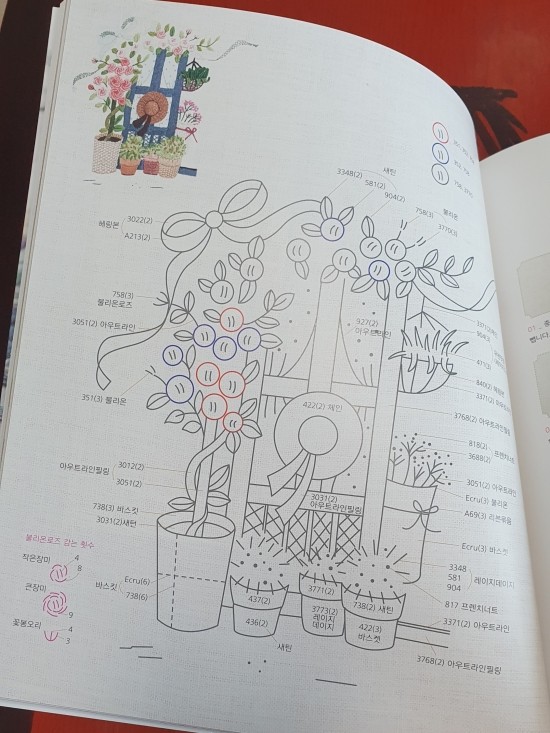 새틴
3348(2)
581(2)
904(2)
불리온
758(3)
3770(3)
헤링본
3022(2)
A213(2)
758(3)
불리온로즈
3051(2) 아우트라인
927(2)
아우트라인
351(3) 불리온
422(2) 체인
471(3)
3371(2)
3768(2) 아우트라인필링
818(2)
3688(2)
프렌치너트
아우트라인필링
3012(2)
3051(2)
3051(2) 아우트라인
Ecru(3) 불리온
A69(3) 리본묶음
738(3) 바스켓
3031(2)새틴
3031(2)
아우트라인필링
Ecru(3) 바스켓
불리온로즈 감는 횟수
작은장미
4
8
큰장미
9
꽃봉오리
4
3
바스켓
Ecru(6)
738(6)
3348
581
904
레이지데이지
437(2)
436(2)
3771(2)
3773(2)
레이지
데이지
738(2) 새틴
422(3)
바스켓
817 프렌치너트
3371(2) 아우트라인
새틴
3768(2) 아우트라인필링